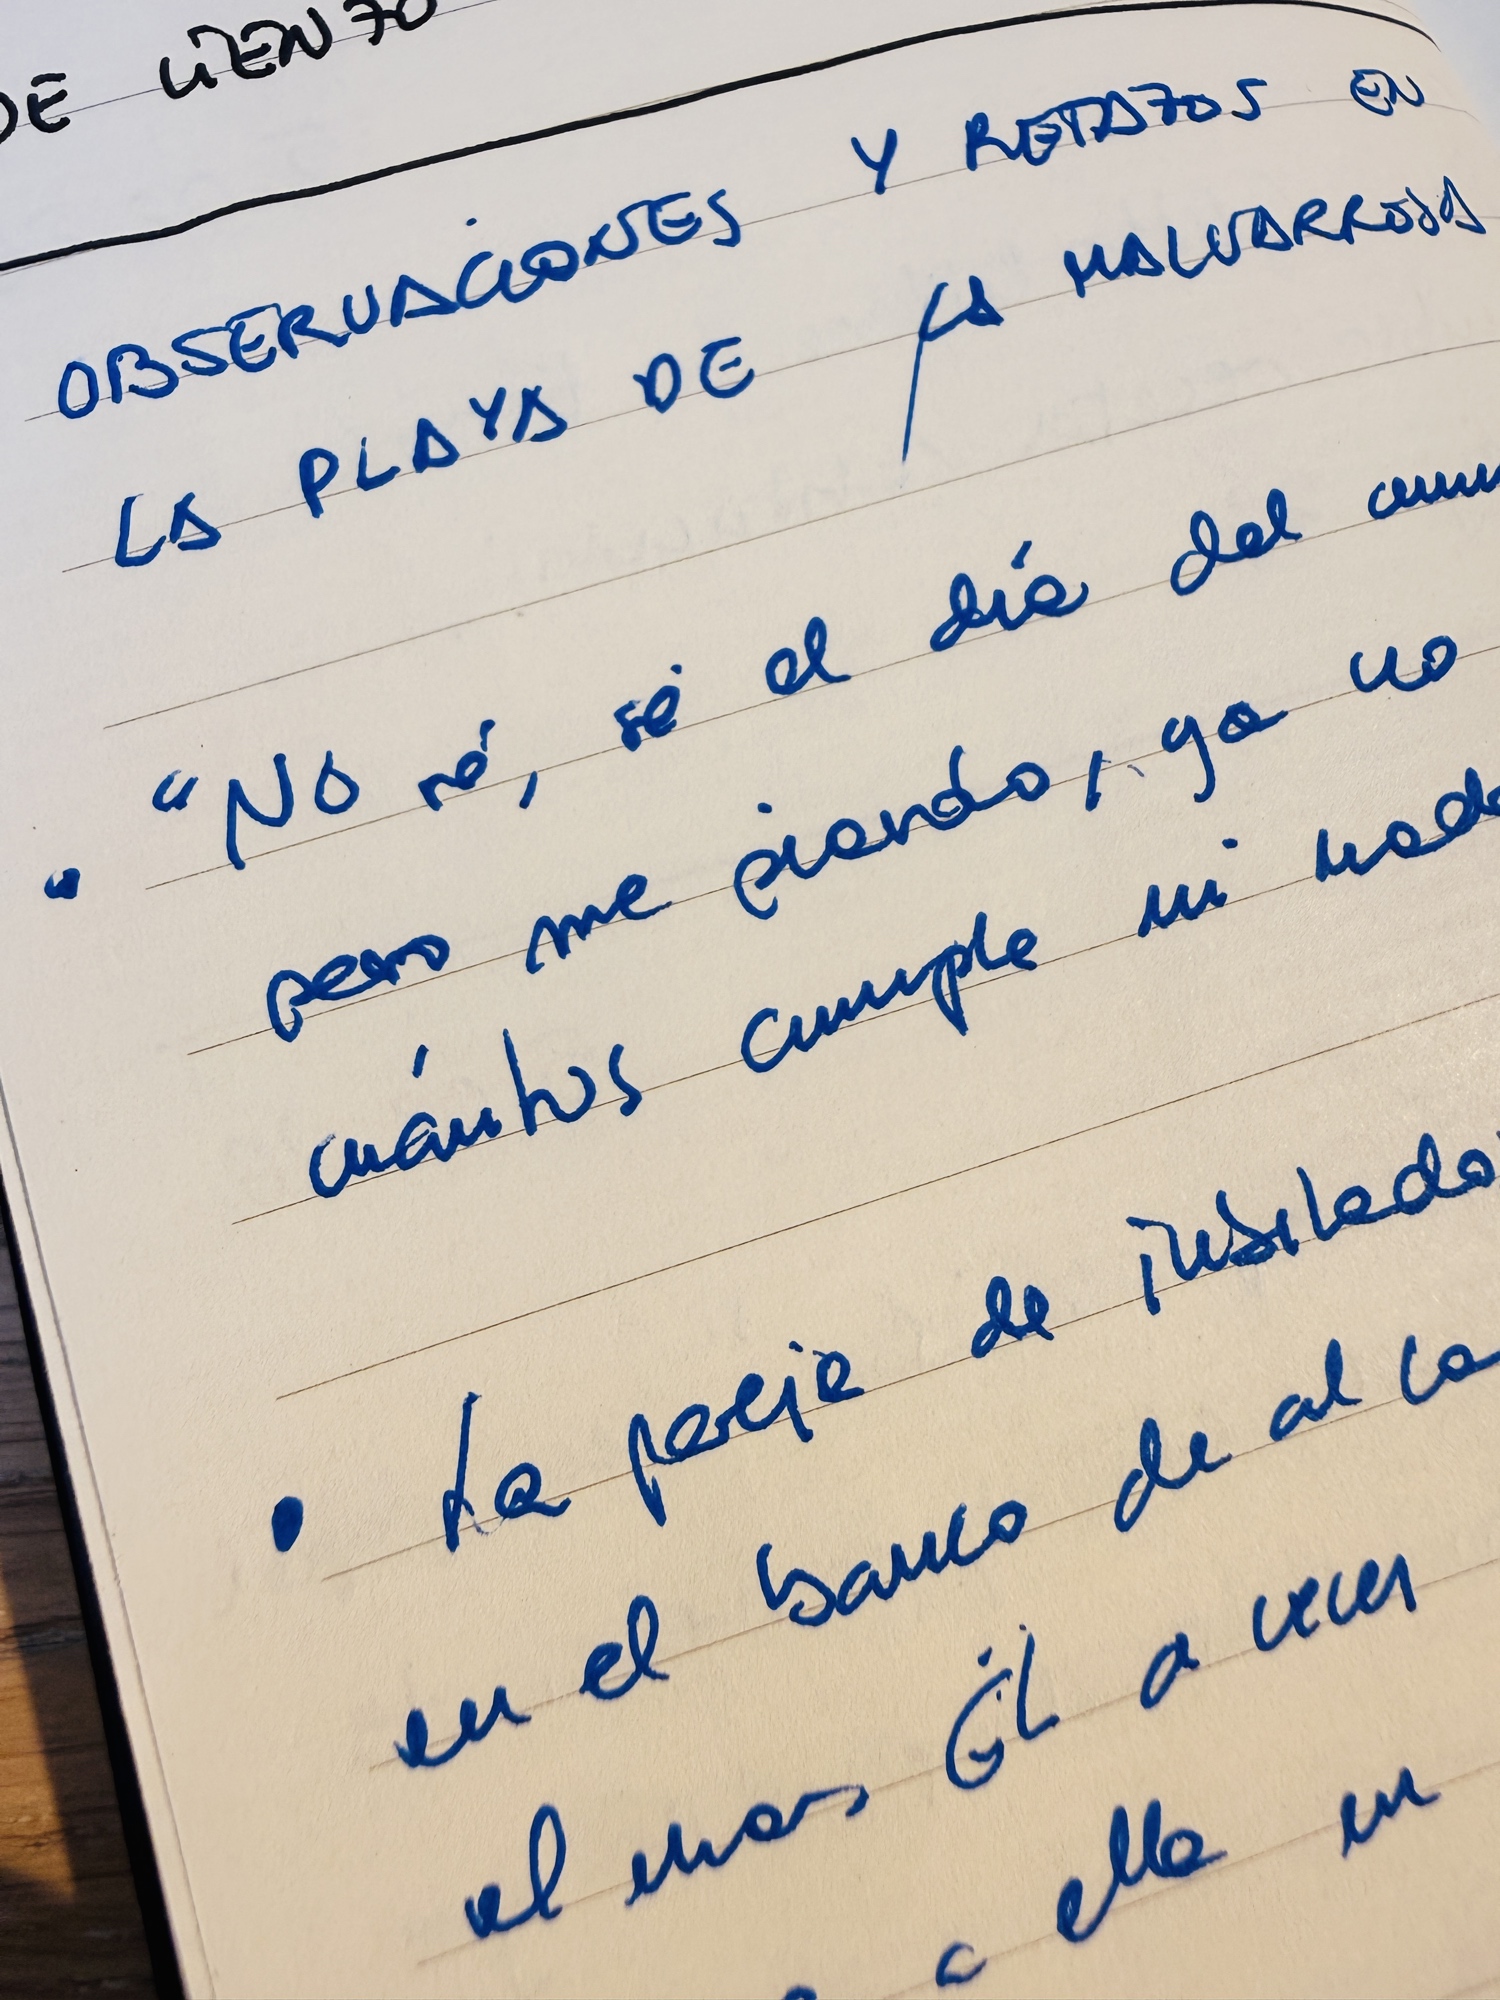 DE LIENZO
OBSERVACIONES Y RETAZOS EN
LA PLAYA DE LA MALVARROSA
"No sé, sé el día del cum
pero me pierdo, ya no
cuántos cumple mi madre
• La pareja de jubilado
en el banco de al la
el mar, Él a veces
a ella un